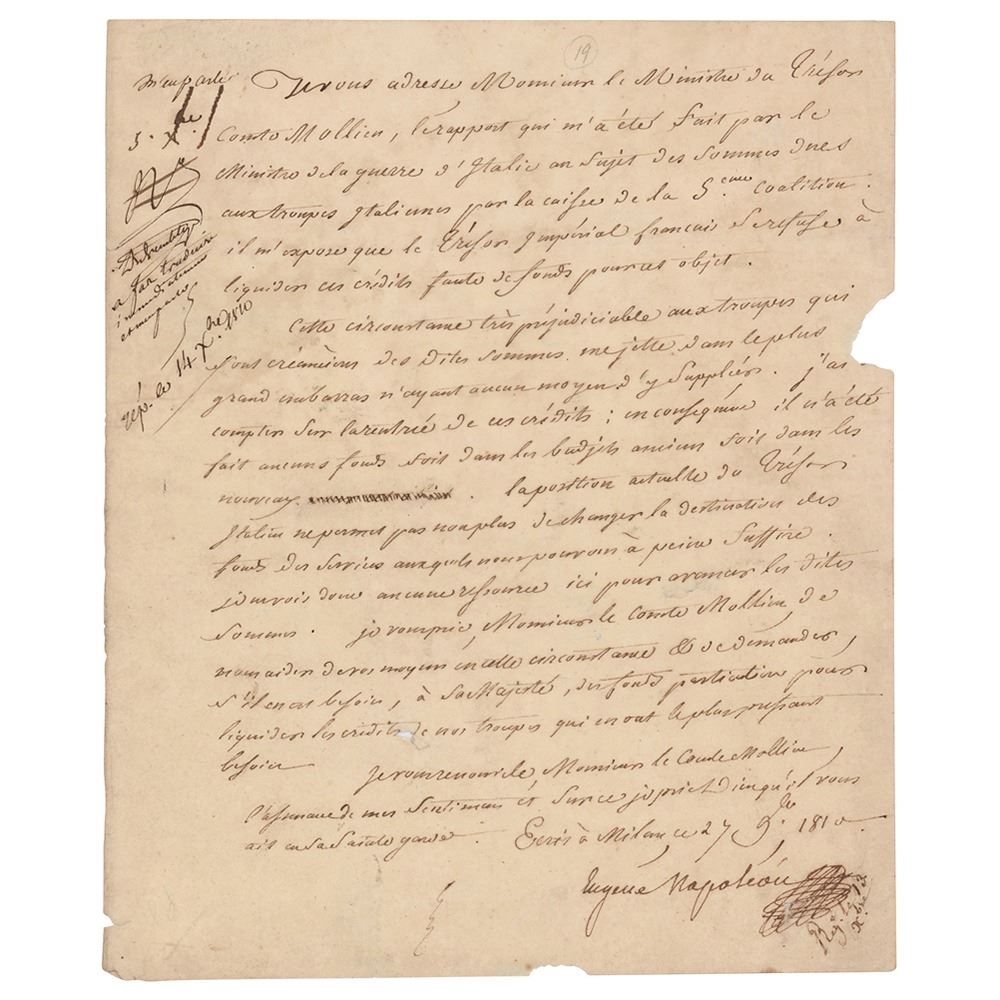 19
m'en parler
5. Xbre
rép. le 14. Xbre 1810
Je vous adresse Monsieur le Ministre du Trésor
Comte Mollien, le rapport qui m'a été fait par le
Ministre de la guerre d'Italie au Sujet des Sommes dues
aux troupes Italiennes par la caisse de la 5.eme Coalition.
il m'expose que le Trésor Impérial français se refuse à
liquider ces crédits faute de fonds pour cet objet.
Cette circonstance très préjudiciable aux troupes qui
sont créancières des dites sommes, me jette dans le plus
grand embarras n'ayant aucun moyen d'y Suppléer. j'ai
compter Sur la rentrée de ces crédits ; en conséquence il n'a été
fait aucuns fonds soit dans les budjets anciens soit dans les
nouveaux. la position actuelle du Trésor
Italien ne permet pas non plus de changer la destination des
fonds des Services auxquels nous pouvons à peine Suffire.
je ne vois donc aucune ressource ici pour avancer les dites
Sommes. je vous prie, Monsieur le Comte Mollien, de
nous aider de vos moyens en cette circonstance & de demander,
s'il en est besoin, à Sa Majesté, des fonds particuliers pour
liquider les crédits de nos troupes qui en ont le plus pressant
besoin
Je vous renouvele, Monsieur le Comte Mollien,
l'assurance de mes Sentimens et Sur ce je prie Dieu qu'il vous
ait en Sa Sainte garde. Ecrit à Milan ce 27 9.bre 1810.
Eugène Napoléon